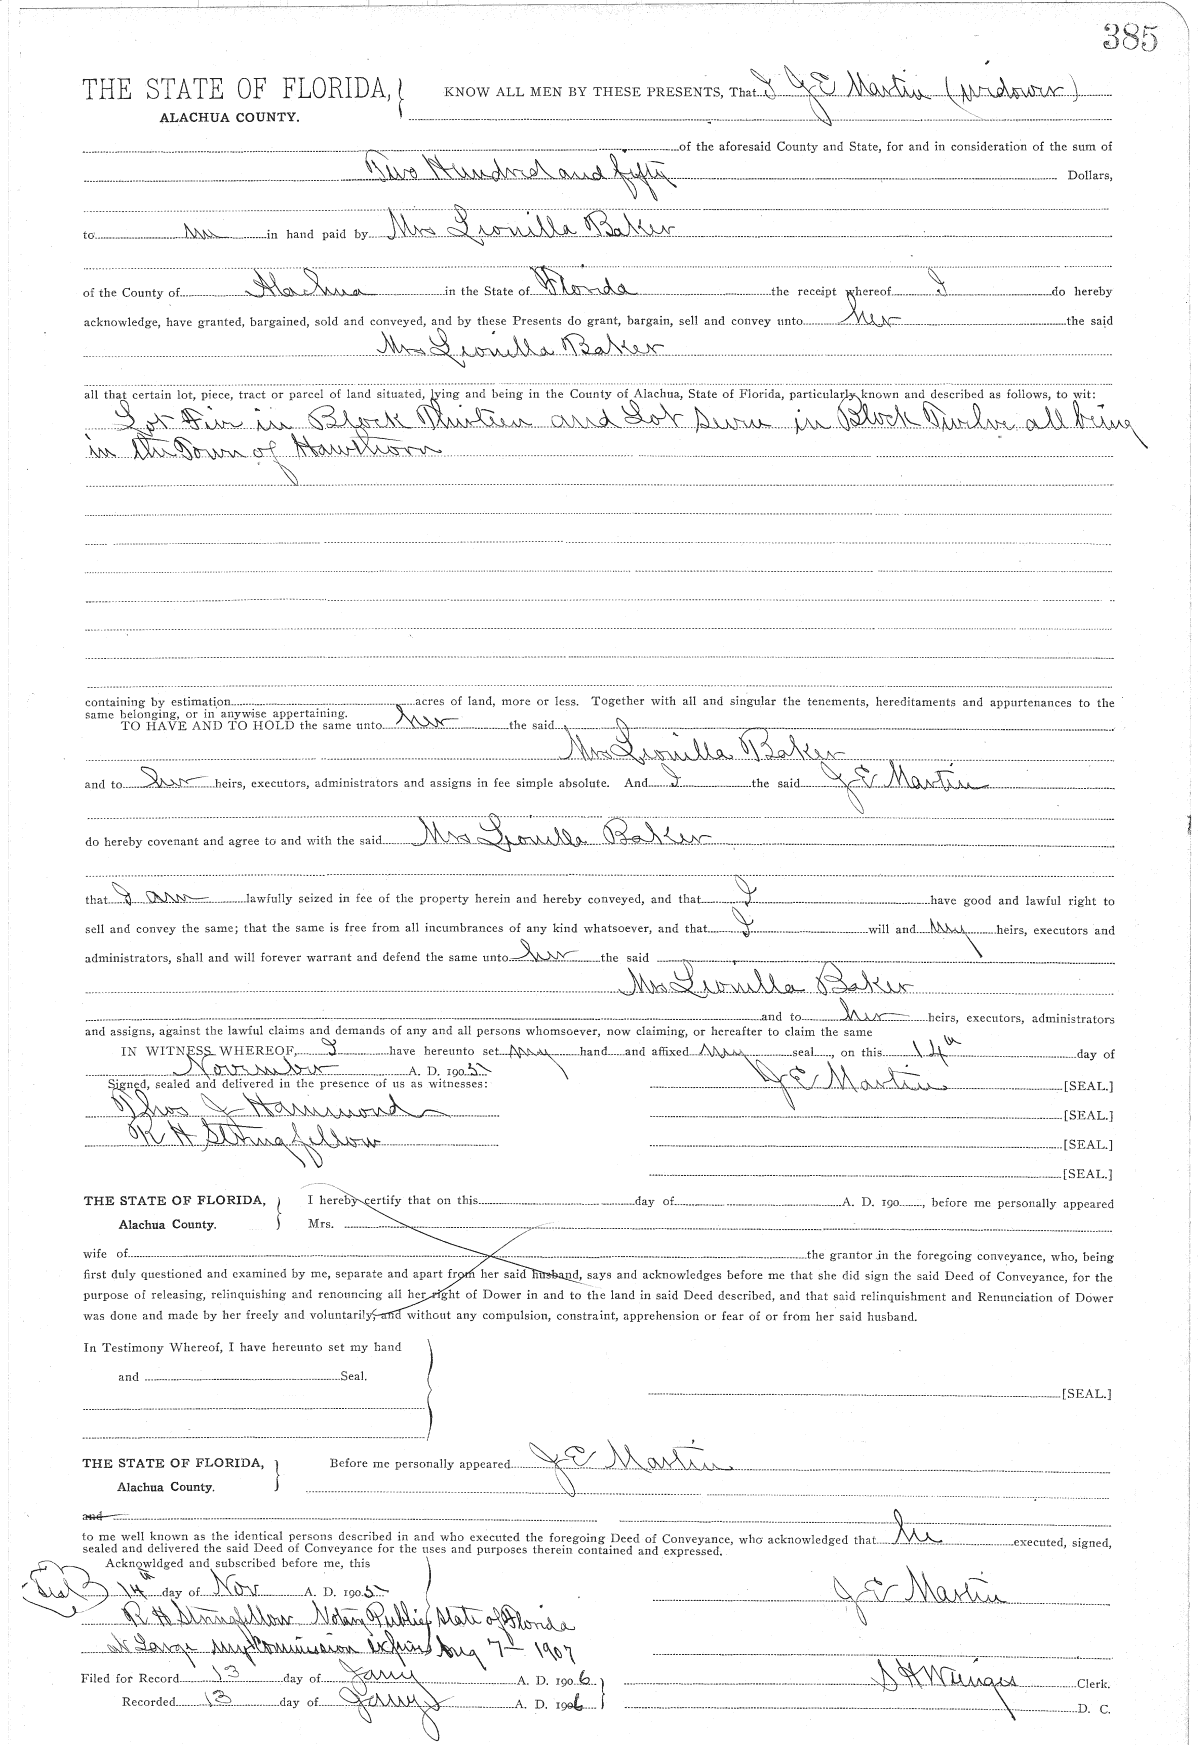 385
THE STATE OF FLORIDA, KNOW ALL MEN BY THESE PRESENTS, That I J E Martin (widower)
ALACHUA COUNTY.
of the aforesaid County and State, for and in consideration of the sum of
Two Hundred and fifty Dollars,
to me in hand paid by Mrs Leonilla Baker
of the County of Alachua in the State of Florida the receipt whereof I do hereby
acknowledge, have granted, bargained, sold and conveyed, and by these Presents do grant, bargain, sell and convey unto her the said
Mrs Leonilla Baker
all that certain lot, piece, tract or parcel of land situated, lying and being in the County of Alachua, State of Florida, particularly known and described as follows, to wit:
Lot Five in Block Thirteen and Lot Seven in Block Twelve all being
in the Town of Hawthorn
containing by estimation acres of land, more or less. Together with all and singular the tenements, hereditaments and appurtenances to the
same belonging, or in anywise appertaining.
TO HAVE AND TO HOLD the same unto her the said
Mrs Leonilla Baker
and to her heirs, executors, administrators and assigns in fee simple absolute. And I the said J E Martin
do hereby covenant and agree to and with the said Mrs Leonilla Baker
that I am lawfully seized in fee of the property herein and hereby conveyed, and that I have good and lawful right to
sell and convey the same; that the same is free from all incumbrances of any kind whatsoever, and that I will and my heirs, executors and
administrators, shall and will forever warrant and defend the same unto her the said
Mrs Leonilla Baker
and to her heirs, executors, administrators
and assigns, against the lawful claims and demands of any and all persons whomsoever, now claiming, or hereafter to claim the same
IN WITNESS WHEREOF, I have hereunto set my hand and affixed my seal, on this 14th day of
November A. D. 1905
Signed, sealed and delivered in the presence of us as witnesses: J E Martin [SEAL.]
Thos J Hammond [SEAL.]
R H Stringfellow [SEAL.]
[SEAL.]
THE STATE OF FLORIDA, I hereby certify that on this day of A. D. 190 , before me personally appeared
Alachua County. Mrs.
wife of the grantor in the foregoing conveyance, who, being
first duly questioned and examined by me, separate and apart from her said husband, says and acknowledges before me that she did sign the said Deed of Conveyance, for the
purpose of releasing, relinquishing and renouncing all her right of Dower in and to the land in said Deed described, and that said relinquishment and Renunciation of Dower
was done and made by her freely and voluntarily, and without any compulsion, constraint, apprehension or fear of or from her said husband.
In Testimony Whereof, I have hereunto set my hand
and Seal.
[SEAL.]
THE STATE OF FLORIDA, Before me personally appeared J E Martin
Alachua County.
and
to me well known as the identical persons described in and who executed the foregoing Deed of Conveyance, who acknowledged that he executed, signed,
sealed and delivered the said Deed of Conveyance for the uses and purposes therein contained and expressed.
Acknowldged and subscribed before me, this
Seal 14th day of Nov A. D. 1905 J E Martin
R H Stringfellow Notary Public State of Florida
at Large my Commission expires Aug 7th 1907
Filed for Record 13 day of Jany A. D. 1906 S H Wienges Clerk.
Recorded 13 day of Jany A. D. 1906 D. C.